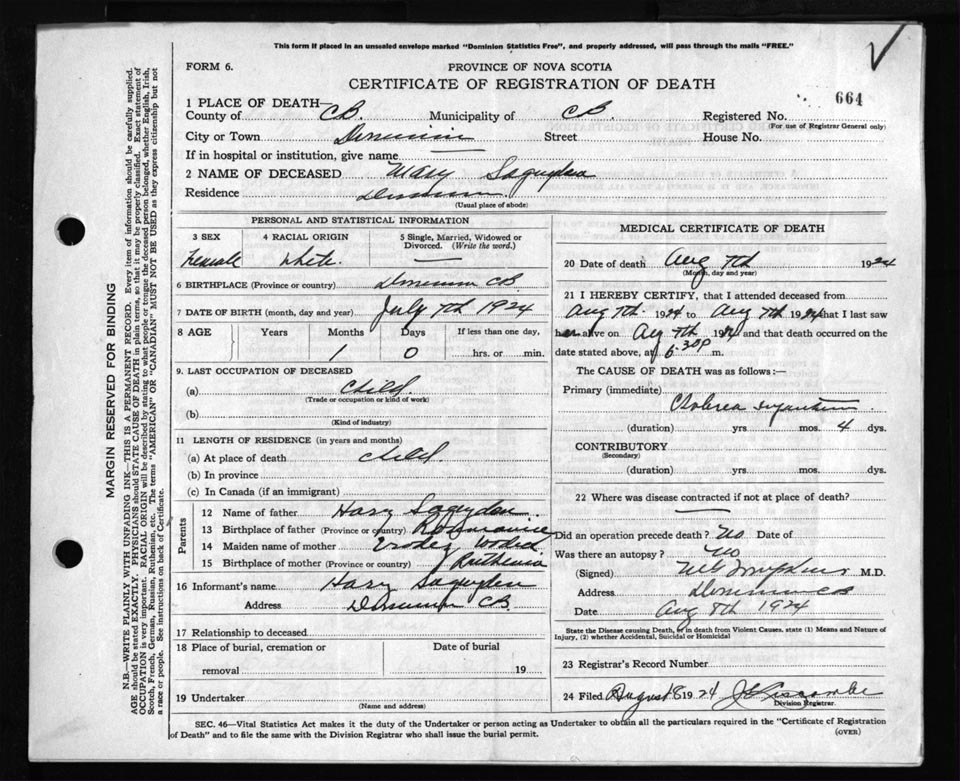 This form if placed in an unsealed envelope marked "Dominion Statistics Free", and properly addressed, will pass through the mails "FREE."
FORM 6.
PROVINCE OF NOVA SCOTIA
CERTIFICATE OF REGISTRATION OF DEATH
664
1 PLACE OF DEATH
County of CB. Municipality of CB. Registered No.
(For use of Registrar General only)
City or Town Dominion Street House No.
If in hospital or institution, give name
2 NAME OF DECEASED Mary Saguyden
Residence Dominion
(Usual place of abode)
PERSONAL AND STATISTICAL INFORMATION
3 SEX 4 RACIAL ORIGIN 5 Single, Married, Widowed or Divorced. (Write the word.)
Female White
6 BIRTHPLACE (Province or country) Dominion CB
7 DATE OF BIRTH (month, day and year) July 7th 1924
8 AGE Years Months Days If less than one day,
1 0 hrs. or min.
9. LAST OCCUPATION OF DECEASED
(a) Child
(Trade or occupation or kind of work)
(b)
(Kind of industry)
11 LENGTH OF RESIDENCE (in years and months)
(a) At place of death child
(b) In province
(c) In Canada (if an immigrant)
Parents
12 Name of father Hary Saguyden
13 Birthplace of father (Province or country)
14 Maiden name of mother
15 Birthplace of mother (Province or country) Ruthenia
16 Informant's name Hary Saguyden
Address Dominion CB
17 Relationship to deceased
18 Place of burial, cremation or removal Date of burial
19
19 Undertaker
(Name and address)
MEDICAL CERTIFICATE OF DEATH
20 Date of death Aug 7th 1924
(Month, day and year)
21 I HEREBY CERTIFY, that I attended deceased from
Aug 7th 1924 to Aug 7th 1924 that I last saw
her alive on Aug 7th 1924 and that death occurred on the
date stated above, at 6.30 p m.
The CAUSE OF DEATH was as follows:—
Primary (immediate)
Cholerea Infantum
(duration) yrs. mos. 4 dys.
CONTRIBUTORY
(Secondary)
(duration) yrs. mos. dys.
22 Where was disease contracted if not at place of death?
Did an operation precede death? No Date of
Was there an autopsy? No
(Signed) M.D.
Address Dominion CB
Date Aug 8th 1924
State the Disease causing Death, or in death from Violent Causes, state (1) Means and Nature of
Injury, (2) whether Accidental, Suicidal or Homicidal
23 Registrar's Record Number
24 Filed August 8 1924 J Liscombe
Division Registrar.
SEC. 46—Vital Statistics Act makes it the duty of the Undertaker or person acting as Undertaker to obtain all the particulars required in the "Certificate of Registration
of Death" and to file the same with the Division Registrar who shall issue the burial permit.
(OVER)
MARGIN RESERVED FOR BINDING
N.B.—WRITE PLAINLY WITH UNFADING INK—THIS IS A PERMANENT RECORD. Every item of information should be carefully supplied.
AGE should be stated EXACTLY. PHYSICIANS should STATE CAUSE OF DEATH in plain terms, so that it may be properly classified. Exact statement of
OCCUPATION is very important. RACIAL ORIGIN will be described by stating to what people or tongue the deceased person belonged, whether English, Irish,
Scotch, French, German, Russian, Ruthenian, etc. The terms "AMERICAN" OR "CANADIAN" MUST NOT BE USED as they express citizenship but not
a race or people. See instructions on back of Certificate.